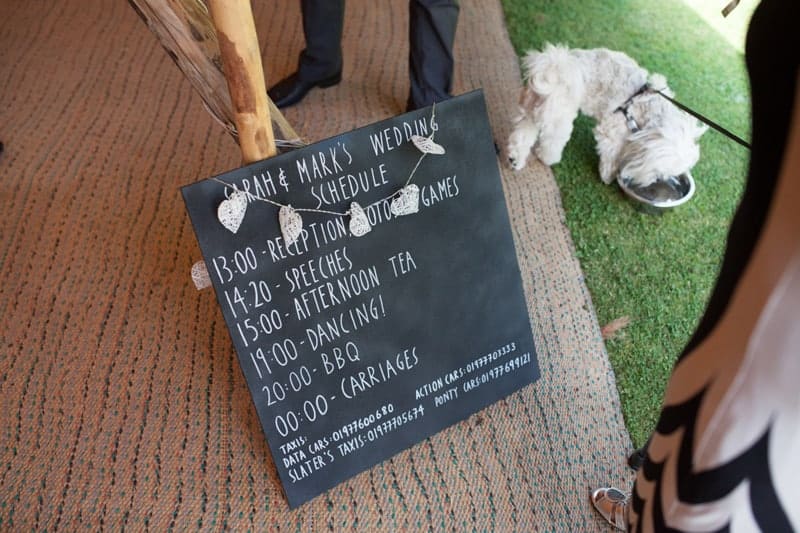 SARAH & MARK'S WEDDING
SCHEDULE
13:00 - RECEPTION GAMES
14:20 - SPEECHES
15:00 - AFTERNOON TEA
19:00 - DANCING!
20:00 - BBQ
00:00 - CARRIAGES
TAXIS:
DATA CARS: 01977600680 ACTION CARS: 01977703333
SLATER'S TAXIS: 01977705674 PONTY CARS: 01977699121